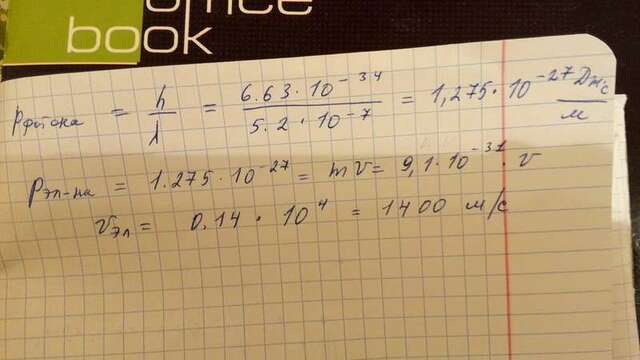 office
book
Pфотона = h/λ = 6.63·10⁻³⁴/5.2·10⁻⁷ = 1,275·10⁻²⁷ Дж·с/м
Pэл-на = 1.275·10⁻²⁷ = mV = 9,1·10⁻³¹·V
Vэл = 0.14·10⁴ = 1400 м/с